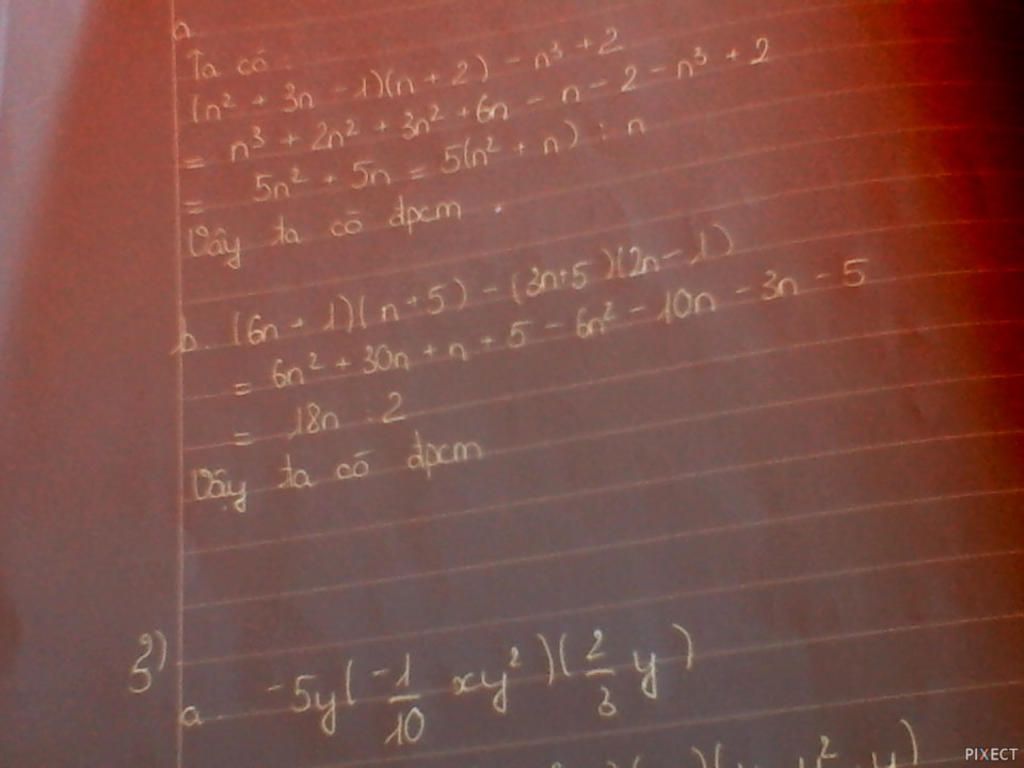 a
Ta có:
(n² + 3n - 1)(n + 2) - n³ + 2
= n³ + 2n² + 3n² + 6n - n - 2 - n³ + 2
= 5n² + 5n = 5(n² + n) ⋮ n
Vậy ta có dpcm.
b (6n + 1)(n+5) - (3n+5)(2n-1)
= 6n² + 30n + n + 5 - 6n² - 10n - 3n - 5
= 18n ⋮ 2
Vậy ta có dpcm
a. -5y(-1/10 xy²)(2/3 y)
PIXECT